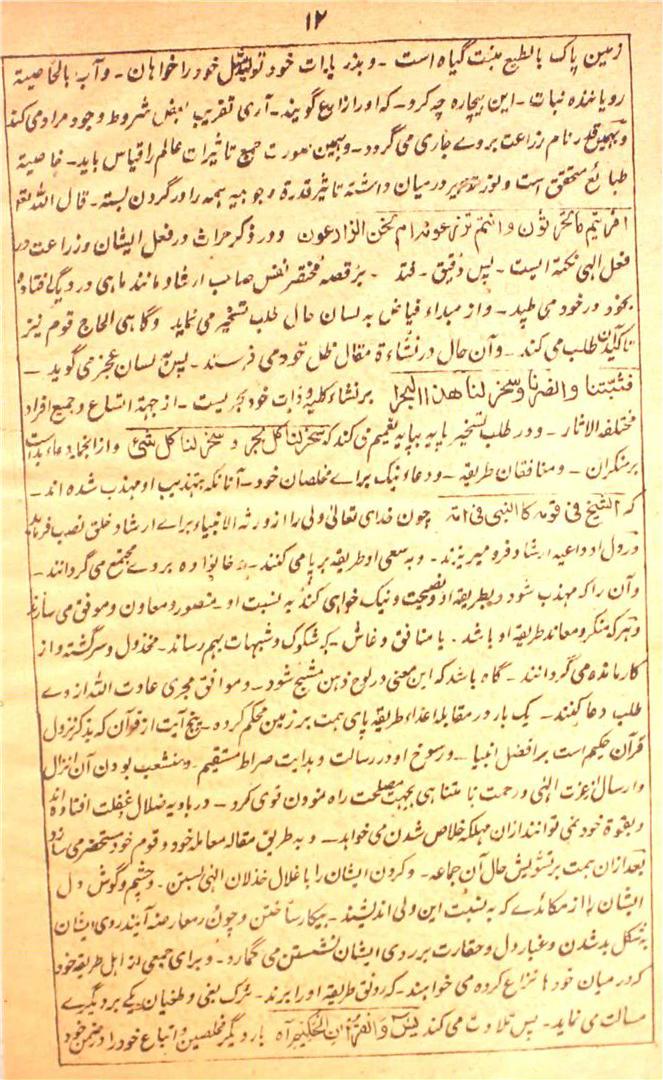 ۱۲
زمین پاک بالطبع منبت گیاه است - و بذر بالذات خود تولید مثل خود را خواهان - و آب بالخاصیة
رویانندهٔ نبات - این بیچاره چه کرد - که او را زارع گویند - آری تقریب بعض شروط وجود مراد می کند
و بهمین قدر نام زراعت بروے جاری می گردد - و بهمین صورت جمیع تاثیرات عالم را قیاس باید - خاصیة
طبائع متحقق است و در میان داشته تاثیر قدرة وجوبیه همه را در گردن بسته - قال الله تعا
افرءیتم ما تحرثون وانتم تزرعونه ام نحن الزارعون و در ذکر حراث در فعل ایشان و زراعت در
فعل الهی نکته ایست - پس دقیق - بر قصه مختصر نفس صاحب ارشاد مانند ماهی در دیگ افتاده
بخود در خود می طپد - و از مبداء فیاض به لسان حال طلب تسخیر می نماید و گاهی الحاح قوم نیز
تاکید آن طلب می کند - و آن حال در نشاءة مقال ظل خود می فرستد - پس به لسان عجز می گوید -
فثبتنا وانصرنا وسخر لنا هذا البحر بر نشاء کلیه و ذات خود بحریست - از جهة اتساع و جمیع افراد
مختلفة الاثار - و در طلب تسخیر پایه بپایه تعمیم می کند که سخر لنا کل بحر و سخر لنا کل شئ و از انجا دعاء بد است
بر منکران - و منافقان طریقه - و دعاء نیک برای مخلصان خود - آنانکه بتهذیب او مهذب شده اند -
که الشیخ فی قومه کالنبی فی امته چون خدای تعالی ولی را از ورثة الانبیاء برای ارشاد خلق نصب فرماید
در دل او داعیه ارشاد فرو میریزند - و به سعی او طریقه برپا می کنند - خانواده بروے مجتمع می گردانند -
و آن را که مهذب شود بطریقه او و نصیحت و نیک خواهی کند به نسبت او - منصور و معاون و موفق می سازند
و هر که منکر و معاند طریقه او باشد - یا منافق و غاش - که شکوک و شبهات بهم رساند - مخذول و سرگشته و از
کار مانده می گردانند - گاه باشد که این معنی در لوح ذهن متشبح شود - و موافق مجری عادت الله از وے
طلب دعا کنند - یک بار در مقابله اعداء طریقه پای همت بر زمین محکم کرده - پنج آیت از قرآن که بذکر نزول
قرآن حکیم است بر افضل انبیا - و رسوخ او در رسالت و هدایت صراط مستقیم - و منشعب بودن آن انزال
و ارسال از عزت الهی و رحمت نامتناهی بجهت مصلحت راه نمودن قوی کرد - در بادیه ضلال غفلت افتاده اند
و بقوة خود نمی توانند ازان مهلکه خلاص شدن می خواند - و به طریق مقاله معامله خود و قوم خود مستحضر می سازد
بعد ازان همت بر تشویش حال آن جماعه - و گردن ایشان را باغلال خذلان الهی بستن - و چشم و گوش و دل
ایشان را از مکائدے که به نسبت این ولی اندیشند - بیکار ساختن و چون در معارضه آیند روی ایشان
بشکل بد شدن و غبار دل و حقارت بر روی ایشان نشستن می گمارد - و برای جمعی از اهل طریقه خود
که در میان خودها نزاع کرده می خواهند - که رونق طریقه او را برند - ترک بغی و طغیان یکے بر دیگرے
مسالت می نماید - پس تلاوت می کند یس والقرآن الحکیم آه بار دیگر مخلصین و اتباع خود را در ضمن خود